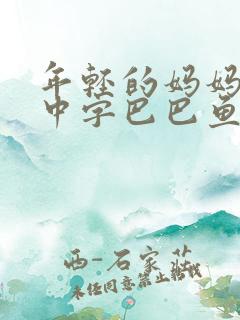 年轻的妈妈
中字巴巴鱼
西-石家庄
未经同意禁止转载